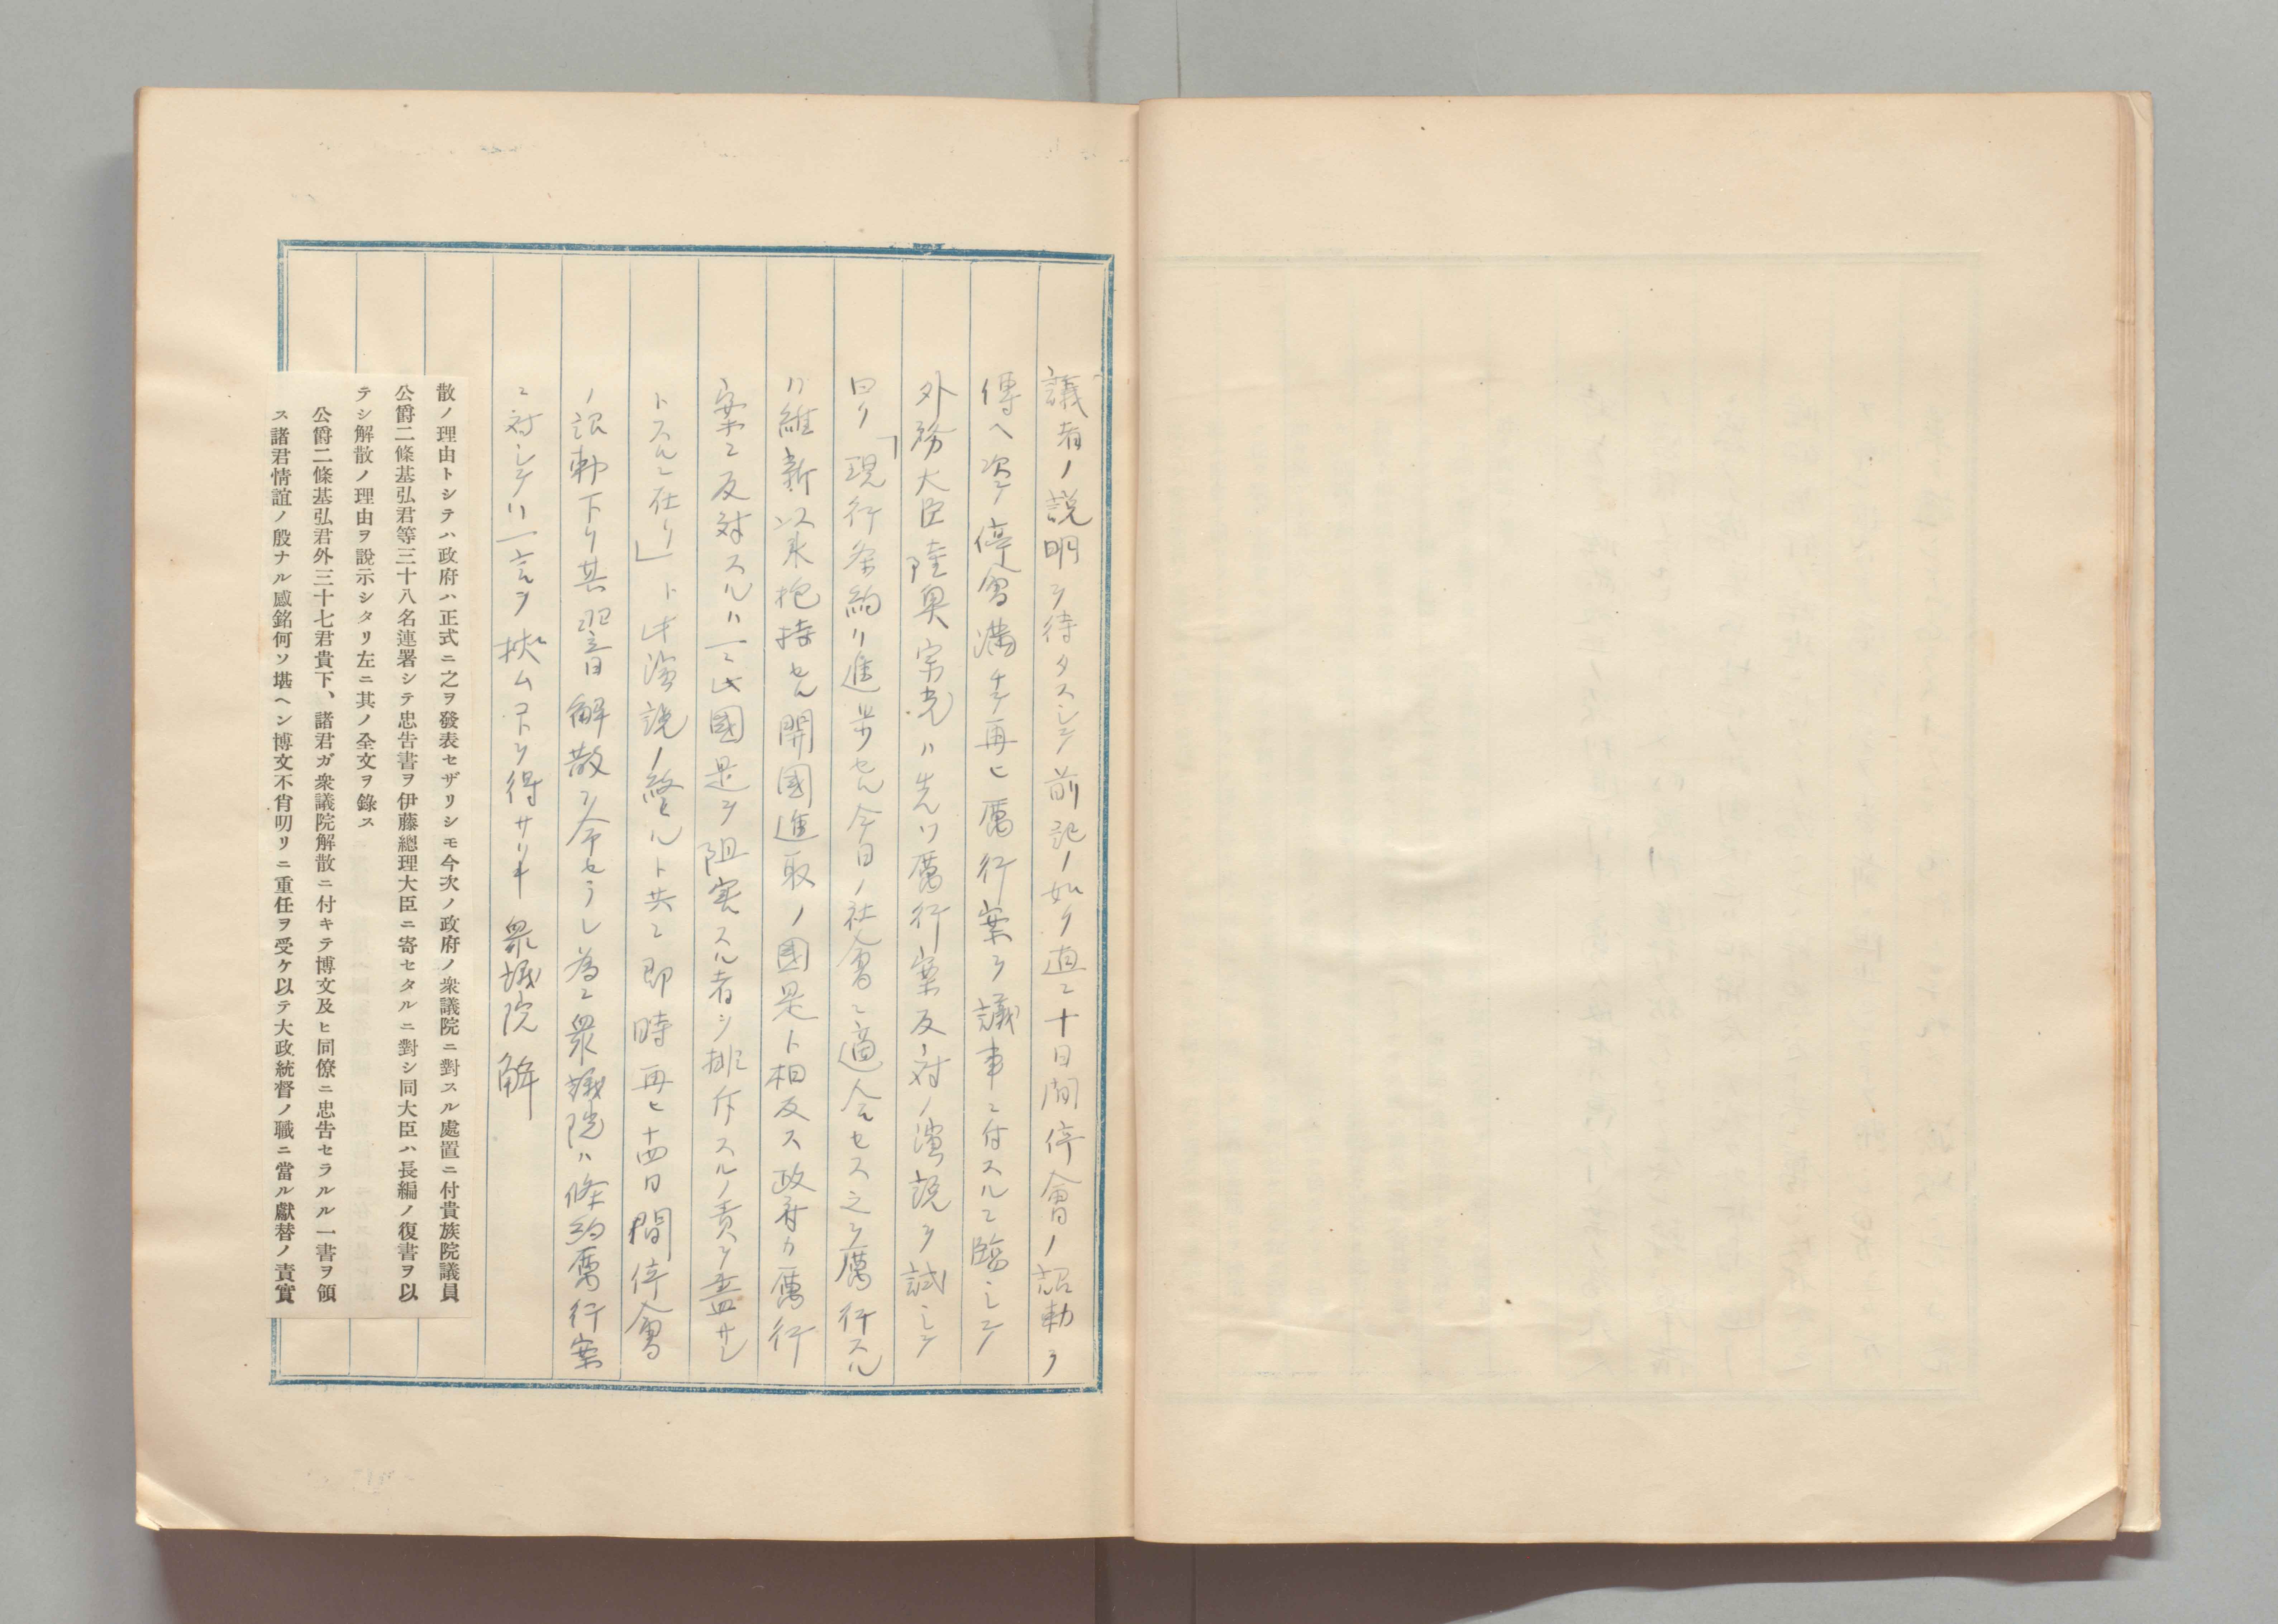 議者ノ説明ヲ待タスシテ前記ノ如ク直ニ十日間停會ノ詔勅ヲ
傳ヘ次テ停會滿チテ再ヒ厲行案ヲ議事ニ付スルニ臨ミシニ
外務大臣陸奥宗光ハ先ツ厲行案反対ノ演説ヲ試ミシテ
曰ク「現行条約ハ進歩セル今日ノ社會ニ適合セス之ヲ厲行スル
ハ維新以来抱持セル開國進取ノ國是ト相反ス政府カ厲行
案ニ反対スルハ一ニ此國是ヲ阻害スル者ヲ排斥スルノ責ヲ盡サン
トスルニ在リ」ト此演説ノ終ルト共ニ即時再ヒ十四日間停會
ノ詔勅下リ其翌日解散ヲ命セラレ為ニ衆議院ハ條約厲行案
ニ対シテハ一言ヲ挾ムコトヲ得サリキ 衆議院解
散ノ理由トシテハ政府ハ正式ニ之ヲ發表セザリシモ今次ノ政府ノ衆議院ニ對スル處置ニ付貴族院議員
公爵二條基弘君等三十八名連署シテ忠告書ヲ伊藤總理大臣ニ寄セタルニ對シ同大臣ハ長編ノ復書ヲ以
テシ解散ノ理由ヲ說示シタリ左ニ其ノ全文ヲ錄ス
公爵二條基弘君外三十七君貴下、諸君ガ衆議院解散ニ付キテ博文及ヒ同僚ニ忠告セラルル一書ヲ領
ス諸君情誼ノ殷ナル感銘何ソ堪ヘン博文不肖叨リニ重任ヲ受ケ以テ大政統督ノ職ニ當ル獻替ノ責實